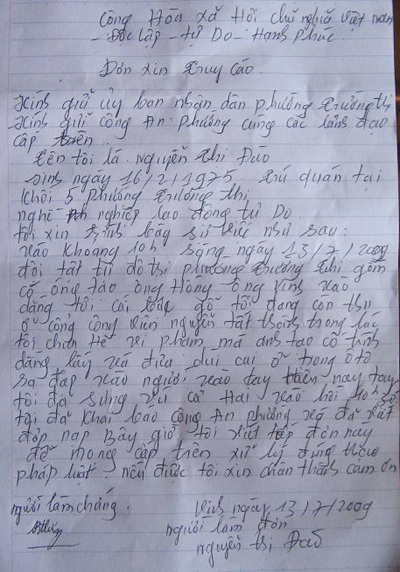 Cộng Hòa xã Hội chủ nghĩa việt nam
- Độc Lập - tự Do - Hạnh phúc
Đơn xin truy cáo.
Kính gửi ủy ban nhân dân phường trường thi
Kính gửi công An phường cùng các lãnh đạo
cấp trên.
tên tôi là nguyễn thi Đào
sinh ngày 16/2/1975 trú quán tại
khối 5 phường trường thi
nghề nghiệp lao động tự Do
tôi xin trình bày sự việc như sau:
vào khoảng 10h sáng ngày 13/7/2009
đội tật tự đô thi phường trường thi gồm
có ông tào ông Hồng ông vinh vào
dằng tôi cái đồ tôi đang còn thu
ở cổng công viên nguyễn tất thành trong lúc
tôi chưa Hề vi phạm mà anh tao cố tình
dằng lấy và đưa dùi cui ở trong ô tô
ra đập vào người vào tay hiện nay tay
tôi đã sưng vù cả Hai vào hồi 10h
tôi đã khai báo công An phường và đã viết
đơn nạp Bây giờ tôi viết tiếp đơn này
để mong cấp trên xử lý đúng theo
pháp luật. nếu được tôi xin chân thành cảm ơn
người làm chứng. vinh ngày 13/7/2009
người làm đơn
nguyễn thị Đào